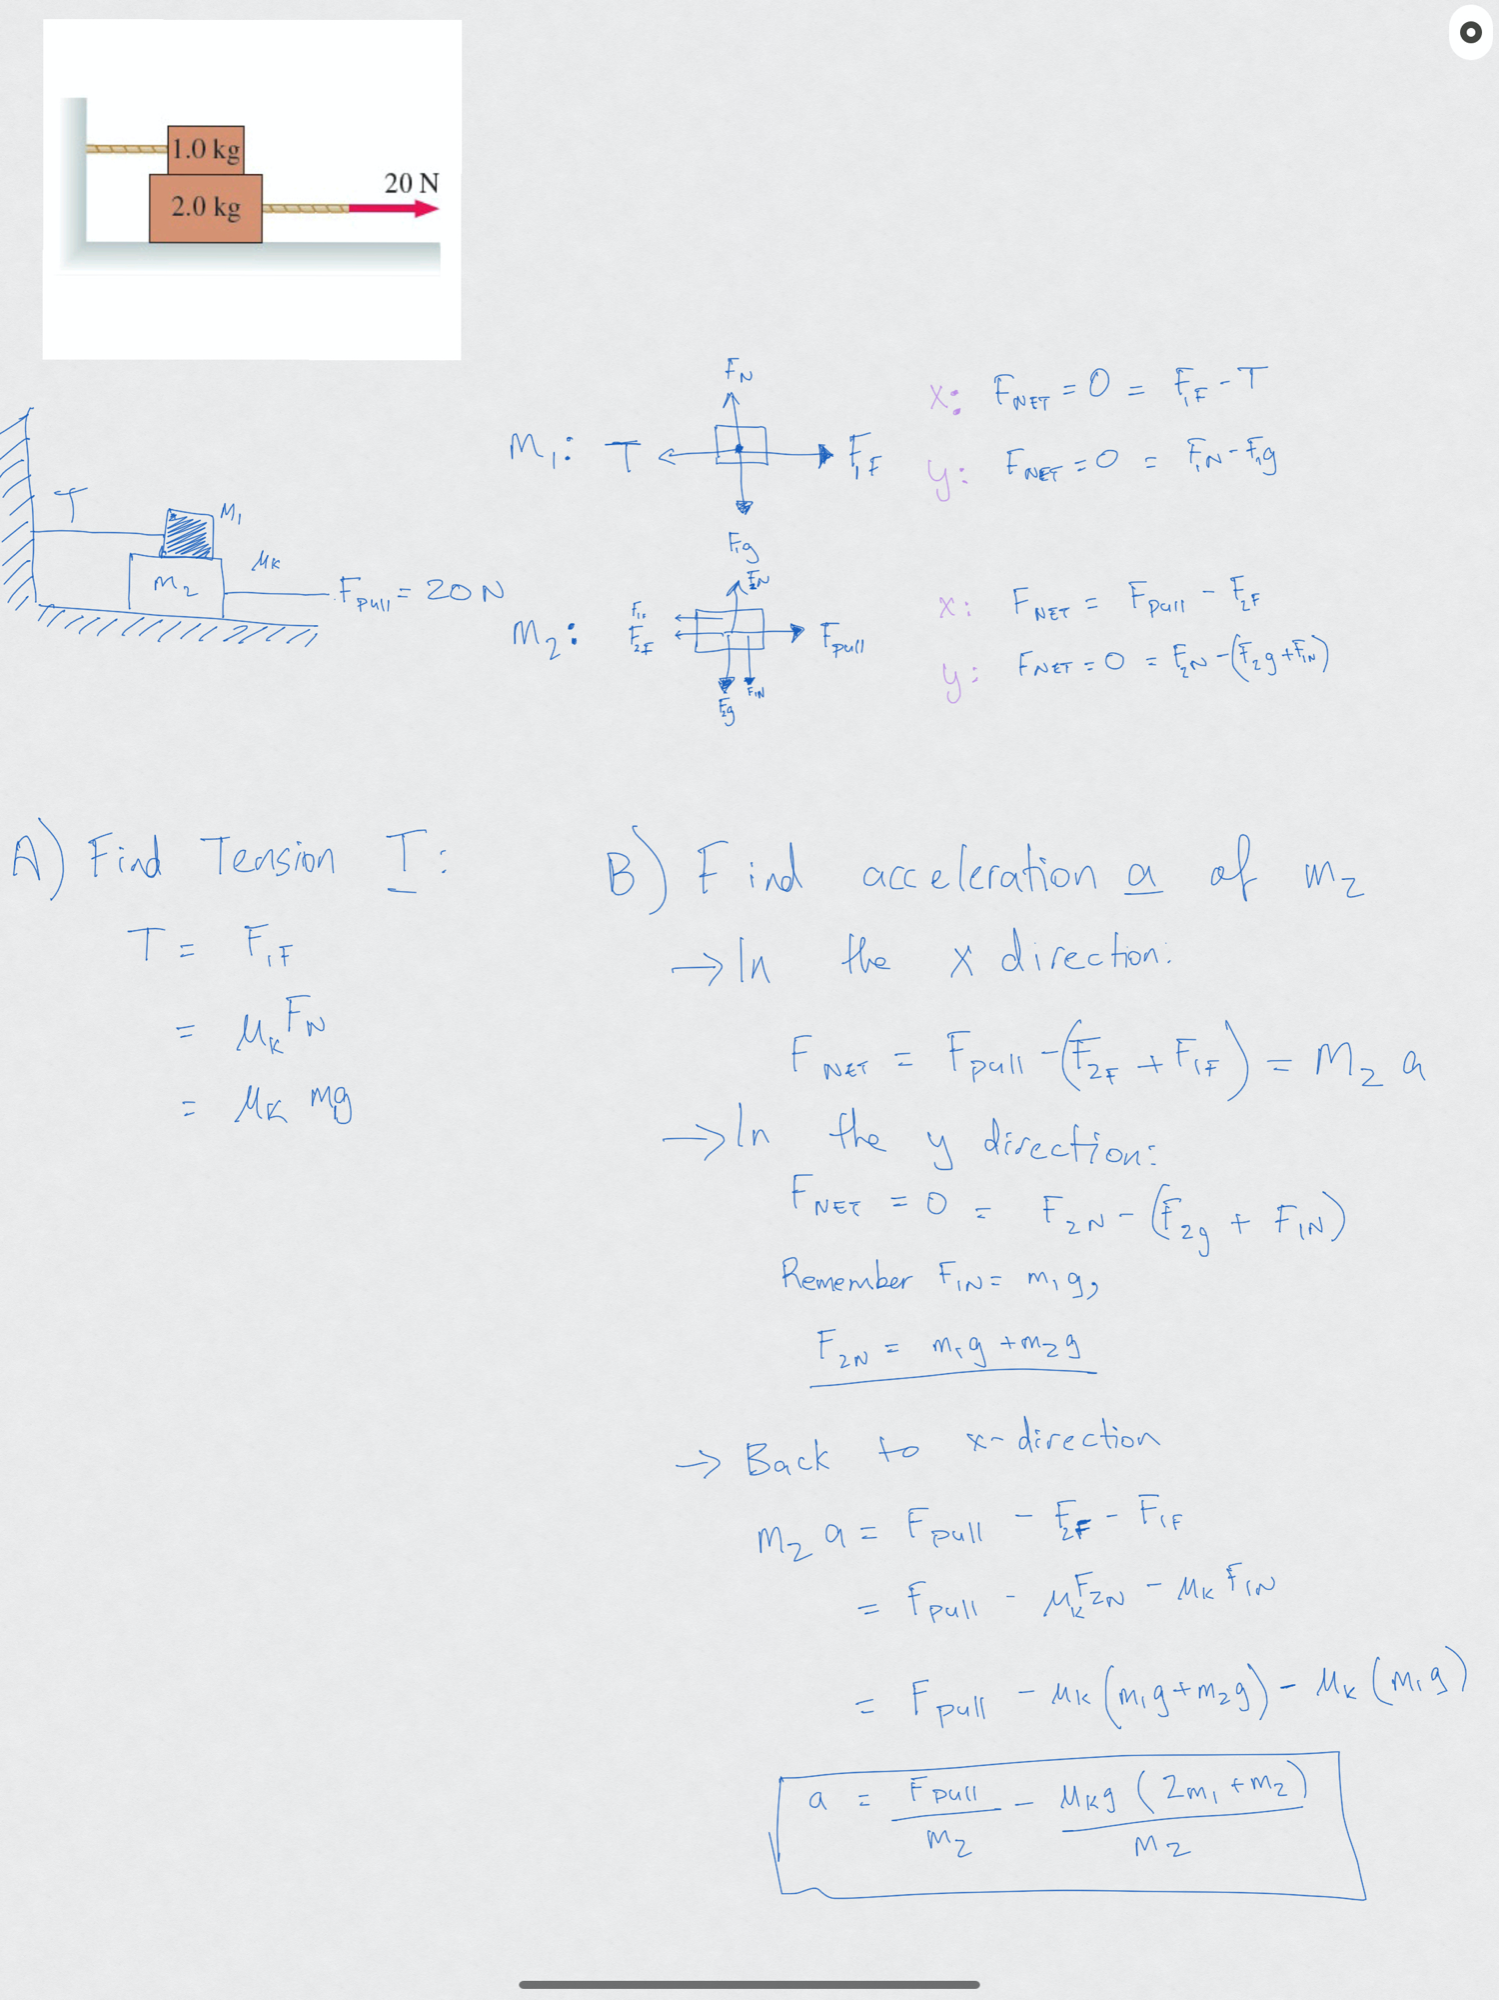 1.0 kg
20 N
2.0 kg
F_N
M_1: T F_1F
F_1g
x: F_NET = 0 = F_1F - T
y: F_NET = 0 = F_1N - F_1g
T
M_1
μ_K
m_2
F_pull = 20 N
F_2N
M_2: F_1F F_2F F_pull
F_2g F_1N
x: F_NET = F_pull - F_2F
y: F_NET = 0 = F_2N - (F_2g + F_1N)
A) Find Tension T:
T = F_1F
= μ_K F_N
= μ_K mg
B) Find acceleration a of m_2
→ In the x direction:
F_NET = F_pull - (F_2F + F_1F) = M_2 a
→ In the y direction:
F_NET = 0 = F_2N - (F_2g + F_1N)
Remember F_1N = m_1g,
F_2N = m_1g + m_2g
→ Back to x-direction
m_2 a = F_pull - F_2F - F_1F
= F_pull - μ_K F_2N - μ_K F_1N
= F_pull - μ_K (m_1g + m_2g) - μ_K (m_1g)
a = F_pull/m_2 - μ_K g (2m_1 + m_2)/m_2